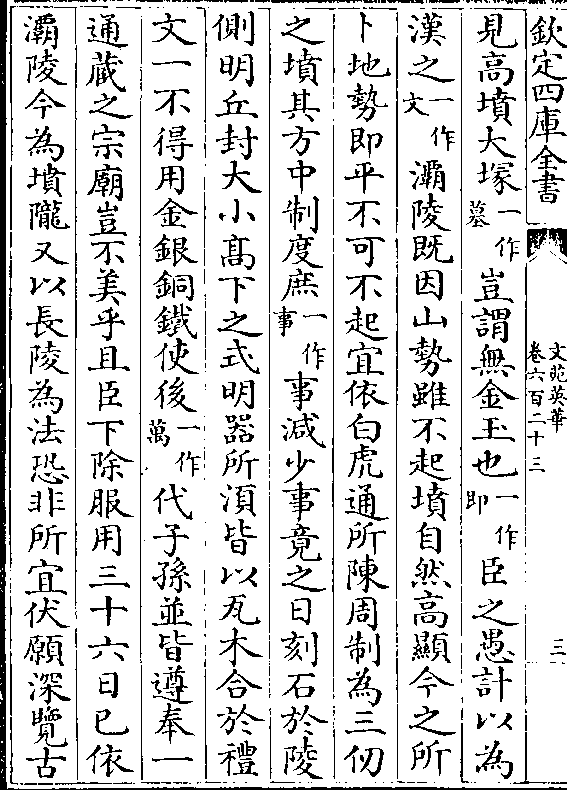 欽定四庫全書
文苑英華
卷六百二十三
三
見高墳大塚一作墓豈謂無金玉也一作即臣之愚計以為
漢之一作文灞陵既因山勢雖不起墳自然高顯今之所
卜地勢即平不可不起宜依白虎通所陳周制為三仞
之墳其方中制度庶一作事事減少事竟之日刻石於陵
側明丘封大小髙下之式明器所須皆以瓦木合於禮
文一不得用金銀銅鐵使後一作萬代子孫並皆遵奉一
通藏之宗廟豈不美乎且臣下除服用三十六日已依
灞陵今為墳隴又以長陵為法恐非所宜伏願深覽古